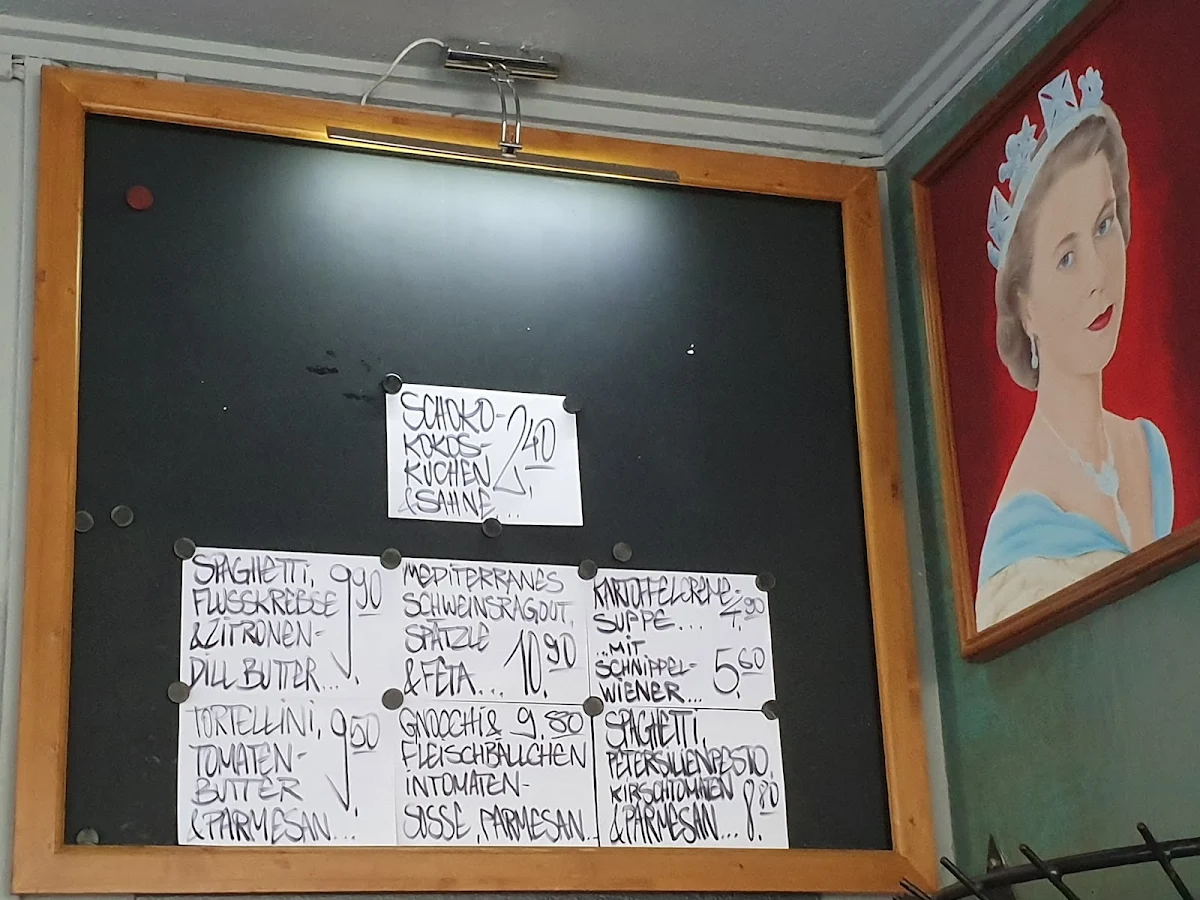 SCHOKO- 2,40
KOKOS-
KUCHEN
& SAHNE...
SPAGHETTI, 9,90
FLUSSKREBSE
& ZITRONEN-
DILL BUTTER...
MEDITERRANES
SCHWEINSRAGOUT,
SPÄTZLE
& FETA... 10,90
KARTOFFELCREME-
SUPPE... 4,90
...MIT
SCHNIPPEL-
WIENER... 5,60
TORTELLINI, 9,50
TOMATEN-
BUTTER
& PARMESAN...
GNOCCHI & 9,80
FLEISCHBÄLLCHEN
IN TOMATEN-
SOSSE, PARMESAN...
SPAGHETTI,
PETERSILIENPESTO,
KIRSCHTOMATEN
& PARMESAN... 8,80